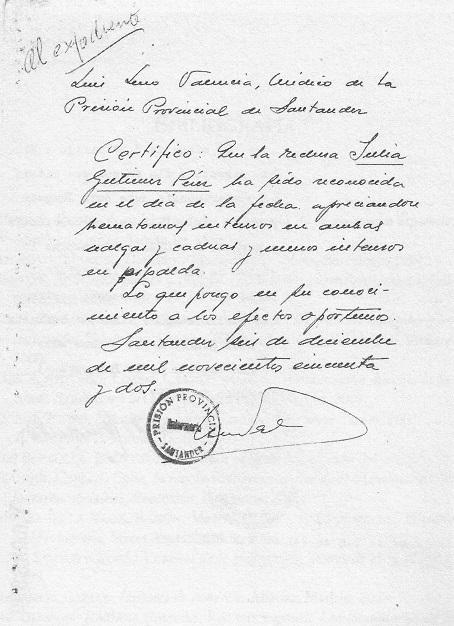 Al expediente
Luis Valencia, Médico de la
Prisión Provincial de Santander
Certifico: Que la reclusa Julia
Gutierrez Pérez ha sido reconocida
en el dia de la fecha apreciandore
hematomas intensos en ambas
nalgas y caderas y menos intensos
en espalda.
Lo que pongo en su conoci-
miento a los efectos oportunos.
Santander seis de diciembre
de mil novecientos cincuenta
y dos.
PRISIÓN PROVINCIAL
SANTANDER